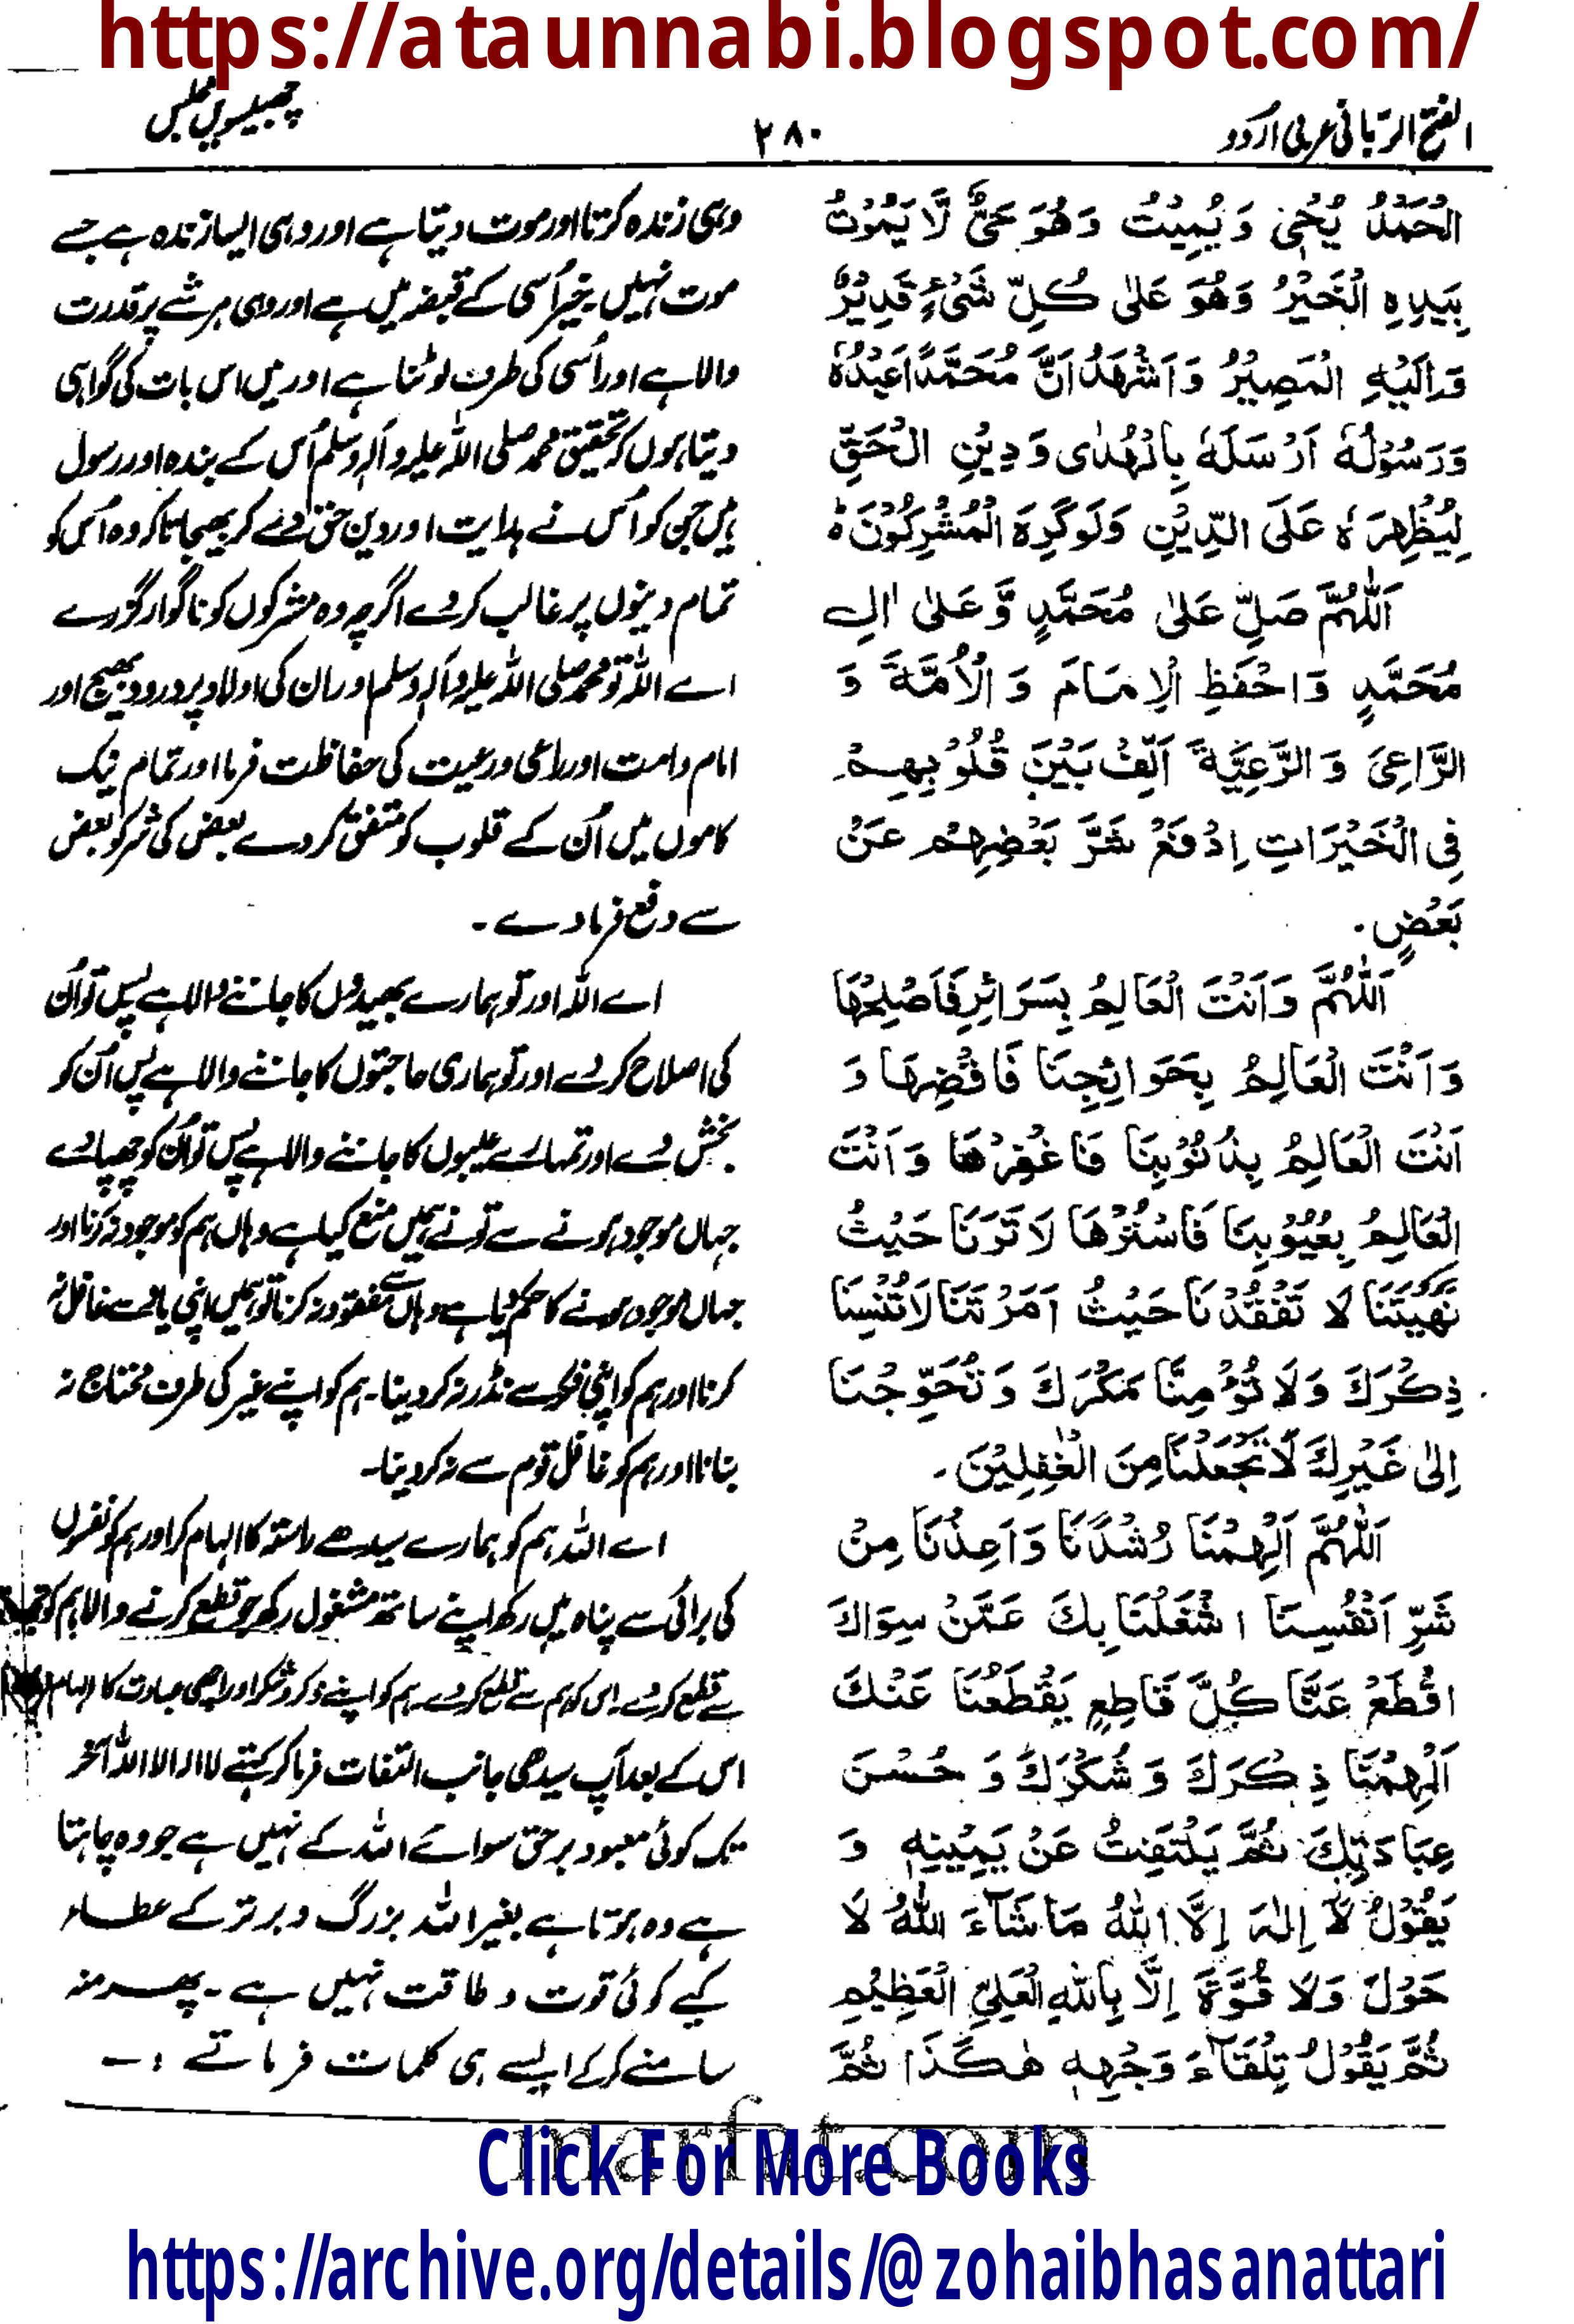 https://ataunnabi.blogspot.com/
الفتح الربانی عربی اردو
۲۸۰
چھبیسویں مجلس
الْحَمْدُ يُحْيِيْ وَ يُمِيْتُ وَهُوَ حَيٌّ لَّا يَمُوْتُ
بِيَدِهِ الْخَيْرُ وَهُوَ عَلٰى كُلِّ شَيْءٍ قَدِيْرٌ
وَ اِلَيْهِ الْمَصِيْرُ وَ اَشْهَدُ اَنَّ مُحَمَّدًا عَبْدُهٗ
وَرَسُوْلُهٗ اَرْسَلَهٗ بِالْهُدٰى وَ دِيْنِ الْحَقِّ
لِيُظْهِرَهٗ عَلَى الدِّيْنِ وَلَوْ كَرِهَ الْمُشْرِكُوْنَ ؕ
اَللّٰهُمَّ صَلِّ عَلٰى مُحَمَّدٍ وَّ عَلٰى اٰلِ
مُحَمَّدٍ وَ احْفَظِ الْاِمَامَ وَ الْاُمَّةَ وَ
الرَّاعِيَ وَ الرَّعِيَّةَ اَلِّفْ بَيْنَ قُلُوْبِهِمْ
فِي الْخَيْرَاتِ اِدْفَعْ شَرَّ بَعْضِهِمْ عَنْ
بَعْضٍ.
اَللّٰهُمَّ وَاَنْتَ الْعَالِمُ بِسَرَائِرِ فَاَصْلِحْهَا
وَ اَنْتَ الْعَالِمُ بِحَوَائِجِنَا فَاقْضِهَا وَ
اَنْتَ الْعَالِمُ بِذُنُوْبِنَا فَاغْفِرْهَا وَ اَنْتَ
الْعَالِمُ بِعُيُوْبِنَا فَاسْتُرْهَا لَا تَرَنَا حَيْثُ
نَهَيْتَنَا لَا تَفْقُدْنَا حَيْثُ اَمَرْتَنَا لَا تُنْسِنَا
ذِكْرَكَ وَلَا تُؤْمِنَّا مَكْرَكَ وَ تُحَوِّجْنَا
اِلٰى غَيْرِكَ لَا تَجْعَلْنَا مِنَ الْغٰفِلِيْنَ۔
اَللّٰهُمَّ اَلْهِمْنَا رُشْدَنَا وَ اَعِذْنَا مِنْ
شَرِّ اَنْفُسِنَا اشْغَلْنَا بِكَ عَمَّنْ سِوَاكَ
اقْطَعْ عَنَّا كُلَّ قَاطِعٍ يَقْطَعُنَا عَنْكَ
اَلْهِمْنَا ذِكْرَكَ وَ شُكْرَكَ وَ حُسْنَ
عِبَادَتِكَ ثُمَّ يَلْتَفِتُ عَنْ يَمِيْنِهٖ وَ
يَقُوْلُ لَا اِلٰهَ اِلَّا اللهُ مَا شَآءَ اللهُ لَا
حَوْلَ وَلَا قُوَّةَ اِلَّا بِاللهِ الْعَلِيِّ الْعَظِيْمِ
ثُمَّ يَقُوْلُ تِلْقَآءَ وَجْهِهٖ هٰكَذَا ثُمَّ
وہی زندہ کرتا اور موت دیتا ہے اور وہی ایسا زندہ ہے جسے
موت نہیں۔ خیر اُسی کے قبضہ میں ہے اور وہی ہر شے پر قدرت
والا ہے اور اُسی کی طرف لوٹنا ہے اور میں اس بات کی گواہی
دیتا ہوں کہ تحقیق محمد صلی اللہ علیہ وآلہ وسلم اُس کے بندہ اور رسول
ہیں جن کو اُس نے ہدایت اور دین حق دے کر بھیجا تاکہ وہ اُس کو
تمام دینوں پر غالب کر دے اگرچہ وہ مشرکوں کو ناگوار گزرے
اے اللہ تو محمد صلی اللہ علیہ وآلہ وسلم اور ان کی اولاد پر درود بھیج اور
امام و امت اور راعی و رعیت کی حفاظت فرما اور تمام نیک
کاموں میں اُن کے قلوب کو متفق کر دے بعض کی شر کو بعض
سے دفع فرما دے۔
اے اللہ اور تو ہمارے بھیدوں کا جاننے والا ہے پس تو اُن
کی اصلاح کر دے اور تو ہماری حاجتوں کا جاننے والا ہے پس اُن کو
بخش دے اور تمہارے عیبوں کا جاننے والا ہے پس تو اُن کو چھپا دے
جہاں موجود ہونے سے تو نے ہمیں منع کیا ہے وہاں ہم کو موجود نہ کرنا اور
جہاں موجود ہونے کا حکم دیا ہے وہاں سے مفقود نہ کرنا تو ہمیں اپنی یاد سے غافل نہ
کرنا اور ہم کو اپنی فکر سے نڈر نہ کر دینا۔ ہم کو اپنے غیر کی طرف محتاج نہ
بنانا اور ہم کو غافل قوم سے نہ کر دینا۔
اے اللہ ہم کو ہمارے سیدھے راستہ کا الہام کر اور ہم کو نفسوں
کی برائی سے پناہ میں رکھ اپنے ساتھ مشغول رکھ جو قطع کرنے والا ہم کو تجھ
سے قطع کر دے اس کو ہم سے قطع کر دے۔ ہم کو اپنے ذکر و شکر اور اچھی عبادت کا الہام
اس کے بعد آپ سیدھی جانب التفات فرما کر کہتے لا الہ الا اللہ آخر
تک کوئی معبود برحق سوائے اللہ کے نہیں ہے جو وہ چاہتا
ہے وہ ہوتا ہے بغیر اللہ بزرگ و برتر کے عطاء
کیے کوئی قوت و طاقت نہیں ہے۔ پھر منہ
سامنے کر کے ایسے ہی کلمات فرماتے :۔
marfat.com
Click For More Books
https://archive.org/details/@zohaibhasanattari